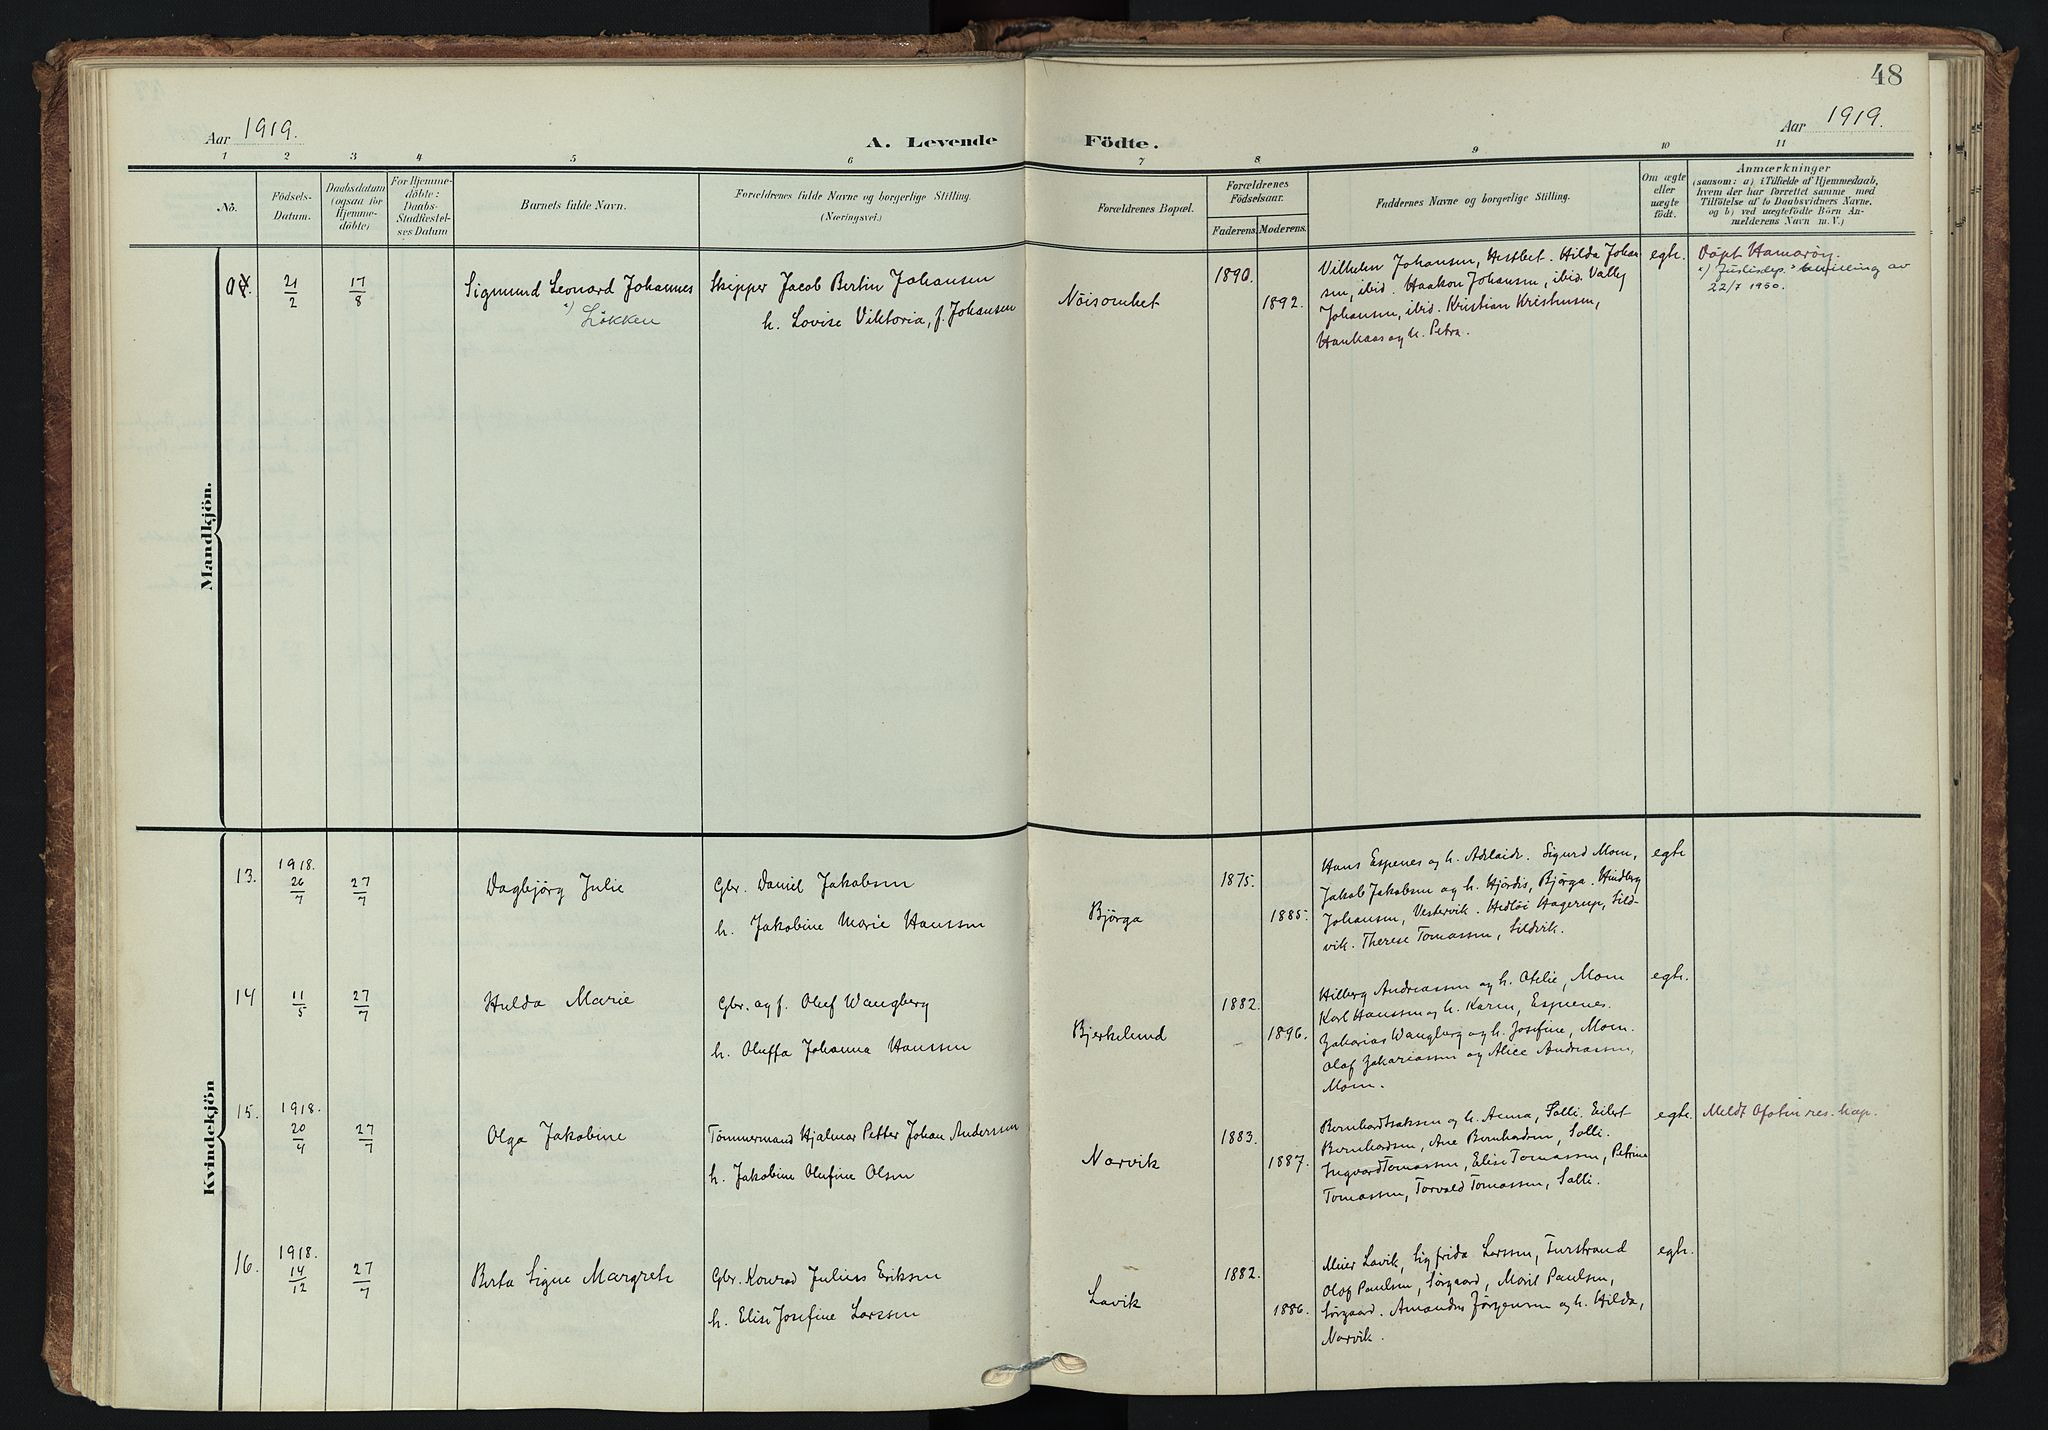 48
Aar 1919.
A. Levende Födte.
Aar 1919.
1 2 3 4 5 6 7 8 9 10 11
Nö.
Födsels-
Datum.
Daabsdatum
(ogsaa for
Hjemme-
döbte)
For Hjemme-
döbte:
Daabs-
Stadfæstel-
ses Datum
Barnets fulde Navn.
Forældrenes fulde Navne og borgerlige Stilling.
(Næringsvei.)
Forældrenes Bopæl.
Forældrenes
Födselsaar.
Faderens. Moderens.
Faddernes Navne og borgerlige Stilling.
Om ægte
eller
uægte
födt.
Anmærkninger
(saasom: a) i Tilfælde af Hjemmedaab,
hvem der har forrettet samme med
Tilföielse af to Daabsvidners Navne.
og b) ved uægtefödte Börn An-
melderens Navn m. V.)
Mandkjön.
21/2
17/8
Sigmund Leonard Johannes
x) Løkken
Skipper Jacob Bertin Johansen
h. Lovise Viktoria, f. Johansen
Nöisomhet
1890.
1892.
Vilhelm Johansen, Hestbet. Hilda Johan
sen, ibid. Haakon Johansen, ibid. Vally
Johansen, ibid. Kristian Kristensen,
og h. Petra.
egte.
Døpt Hamarøy.
x) Justisdep.s bevilling av
22/7 1950.
Kvindekjön
13.
1918.
26/7
27/7
Dagbjörg Julie
Gbr. Daniel Jakobsen
h. Jakobine Marie Hanssen
Björga
1875.
1885.
Hans Espenes og h. Adelaide. Sigurd Mom,
Jakob Jakobsen og h. Hjördis, Björga. Hindberg
Johansen, Vestervik. Hedlöi Hagerup, Sild-
vik. Therese Tomassen, Sildvik.
egte
14
11/5
27/7
Hulda Marie
Gbr. og f. Oluf Wangberg
h. Oluffa Johanna Hanssen
Bjerkelund
1882.
1896.
Hilberg Andreassen og h. Otelie, Mom
Karl Hanssen og h. Karen, Espenes.
Zakarias Wangberg og h. Josefine, Mom.
Olaf Zakariassen og Alice Andreassen,
Mom.
egte.
15.
1918.
20/4
27/7
Olga Jakobine
Tömmermand Hjalmar Petter Johan Anderssen
h. Jakobine Olufine Olsen
Narvik
1883.
1887.
Bernhard Isaksen og h. Anna, Salli. Eilert
Bernhardsen, Ane Bernhardsen, Salli.
Ingvard Tomassen, Elise Tomassen, Petrine
Tomassen, Torvald Tomassen, Salli.
egte.
Meldt Ofoten res. kap.
16.
1918.
14/12
27/7
Berta Signe Margrete
Gbr. Konrad Julius Eriksen
h. Elise Josefine Larssen
Lavik
1882.
1886.
Meier Lavik, Sigfrida Larssen, Turstrand
Olaf Paulsen, Sörgaard, Marit Paulsen,
Sörgaard. Amandus Jörgensen og h. Hilda,
Narvik.
egte.